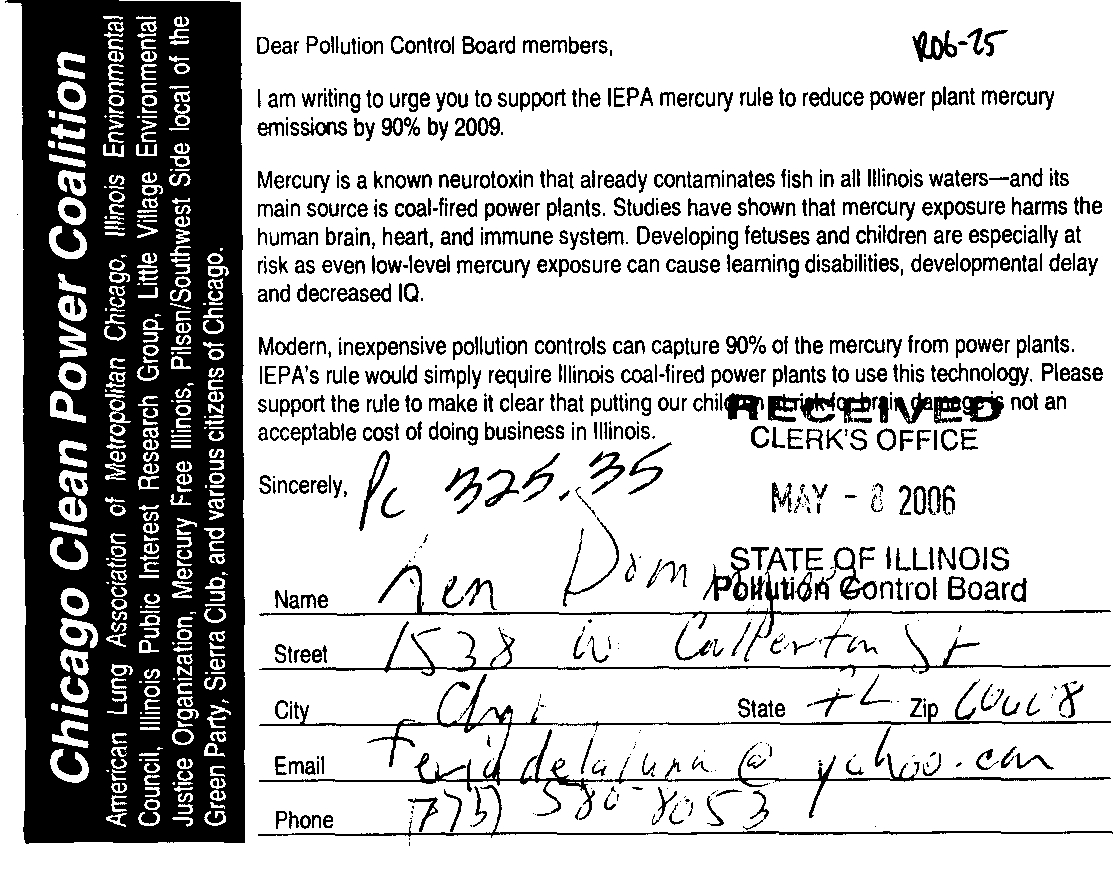 Chicago Clean Power Coalition
American Lung Association of Metropolitan Chicago, Illinois Environmental
Council, Illinois Public Interest Research Group, Little Village Environmental
Justice Organization, Mercury Free Illinois, Pilsen/Southwest Side local of the
Green Party, Sierra Club, and various citizens of Chicago.
Dear Pollution Control Board members,
R06-25
I am writing to urge you to support the IEPA mercury rule to reduce power plant mercury
emissions by 90% by 2009.
Mercury is a known neurotoxin that already contaminates fish in all Illinois waters—and its
main source is coal-fired power plants. Studies have shown that mercury exposure harms the
human brain, heart, and immune system. Developing fetuses and children are especially at
risk as even low-level mercury exposure can cause learning disabilities, developmental delay
and decreased IQ.
Modern, inexpensive pollution controls can capture 90% of the mercury from power plants.
IEPA's rule would simply require Illinois coal-fired power plants to use this technology. Please
support the rule to make it clear that putting our children at risk for brain damage is not an
acceptable cost of doing business in Illinois.
RECEIVED
CLERK'S OFFICE
MAY - 8 2006
STATE OF ILLINOIS
Pollution Control Board
Sincerely,
Pc 325.35
Name
Street 1538 W Cullerton St
City State IL Zip 60608
Email @ yahoo.com
Phone 580-8053